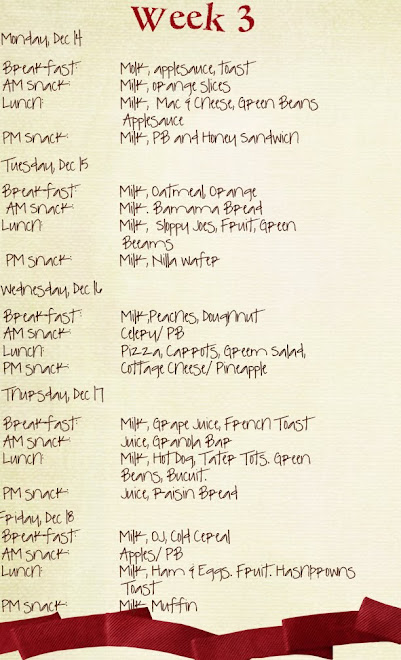 Week 3
Monday, Dec 14
Breakfast: Molk, applesauce, toast
AM snack: Milk, orange slices
Lunch: Milk, Mac & Cheese, Green Beans
Applesauce
PM snack: Milk, PB and Honey Sandwich
Tuesday, Dec 15
Breakfast: Milk, Oatmeal, Orange
AM snack: Milk. Banana Bread
Lunch: Milk, Sloppy Joes, Fruit, Green
Beans
PM snack: Milk, Nilla wafer
Wednesday, Dec 16
Breakfast: Milk,Peaches, Doughnut
AM snack: Celery/ PB
Lunch: Pizza, Carrots, Green Salad,
PM snack: Cottage Cheese/ Pineapple
Thursday, Dec 17
Breakfast: Milk, Grape Juice, French Toast
AM snack: Juice, Granola Bar
Lunch: Milk, Hot Dog, Tater Tots. Green
Beans, Bucuit.
PM snack: Juice, Raisin Bread
Friday, Dec 18
Breakfast: Milk, OJ, Cold Cereal
AM snack: Apples/ PB
Lunch: Milk, Ham & Eggs. Fruit. Hashbrowns
Toast
PM snack: Milk Muffin